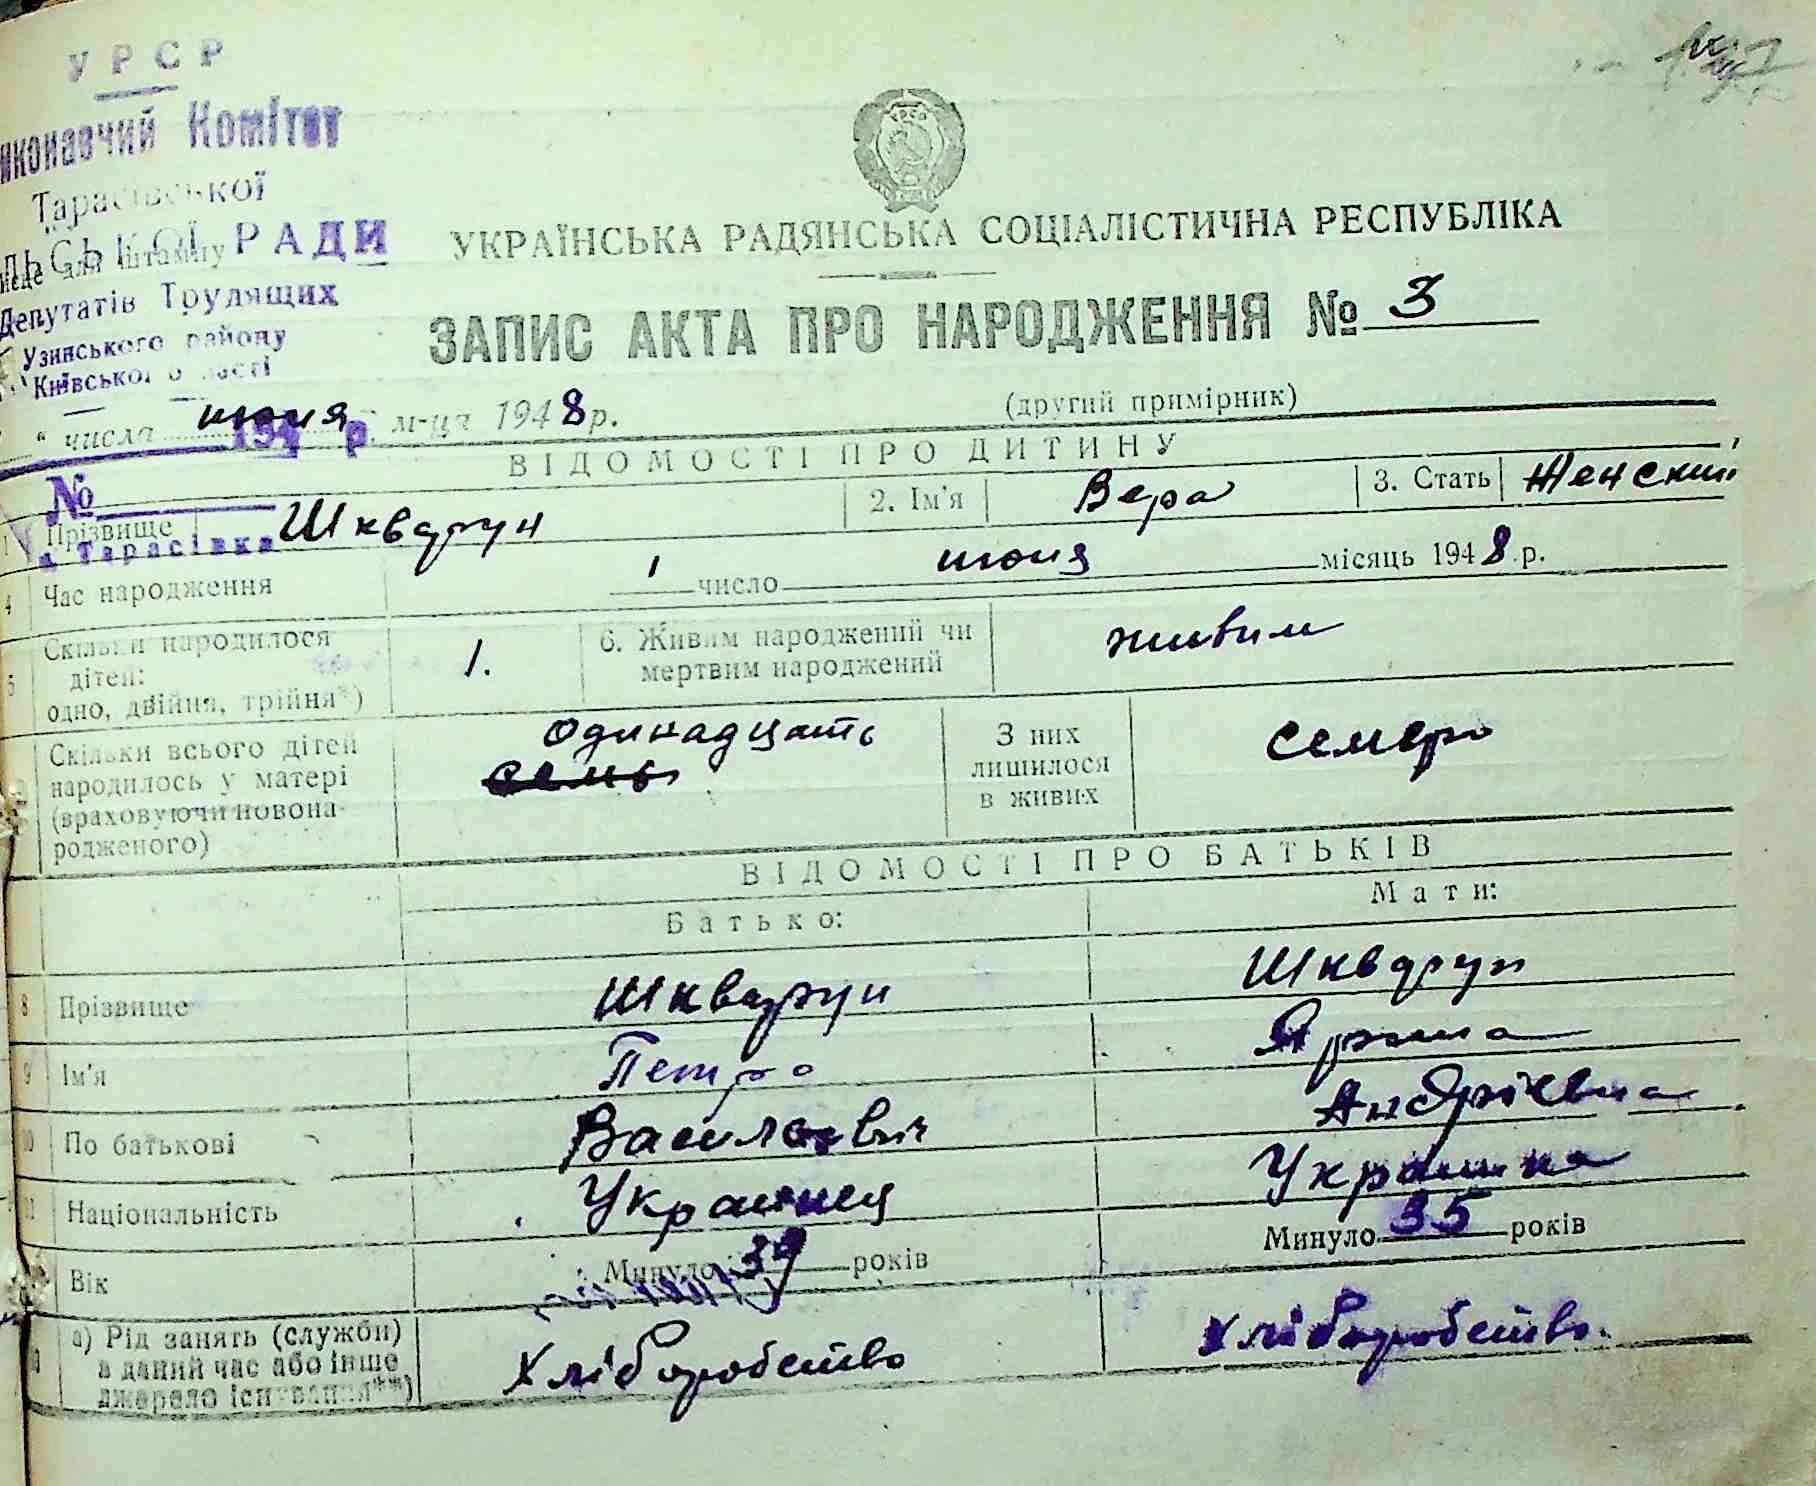 УРСР
иконавчий Комітет
Тарасівської
льської РАДИ
Місце для штампу
Депутатів Трудящих
Узинського району
Київської області
УРСР
УКРАЇНСЬКА РАДЯНСЬКА СОЦІАЛІСТИЧНА РЕСПУБЛІКА
ЗАПИС АКТА ПРО НАРОДЖЕННЯ № 3
(другий примірник)
" числа июня м-ця 1948 р.
194 р.
ВІДОМОСТІ ПРО ДИТИНУ
№
с. Тарасівка
1 Прізвище Шкварун 2. Ім'я Вера 3. Стать Женский
4 Час народження 1 число июня місяць 1948 р.
5 Скільки народилося дітей: одно, двійня, трійня*) 1. 6. Живим народжений чи мертвим народжений живим
Скільки всього дітей народилось у матері (враховуючи новонародженого) одинадцать семь З них лишилося в живих семеро
ВІДОМОСТІ ПРО БАТЬКІВ
Батько: Мати:
8 Прізвище Шкварун Шкварун
9 Ім'я Петро Ярина
10 По батькові Василович Андріевна
11 Національність Украинец Украинка
Вік Минуло 39 років Минуло 35 років
а) Рід занять (служби) в даний час або інше джерело існування**) Хліборобство Хліборобство.